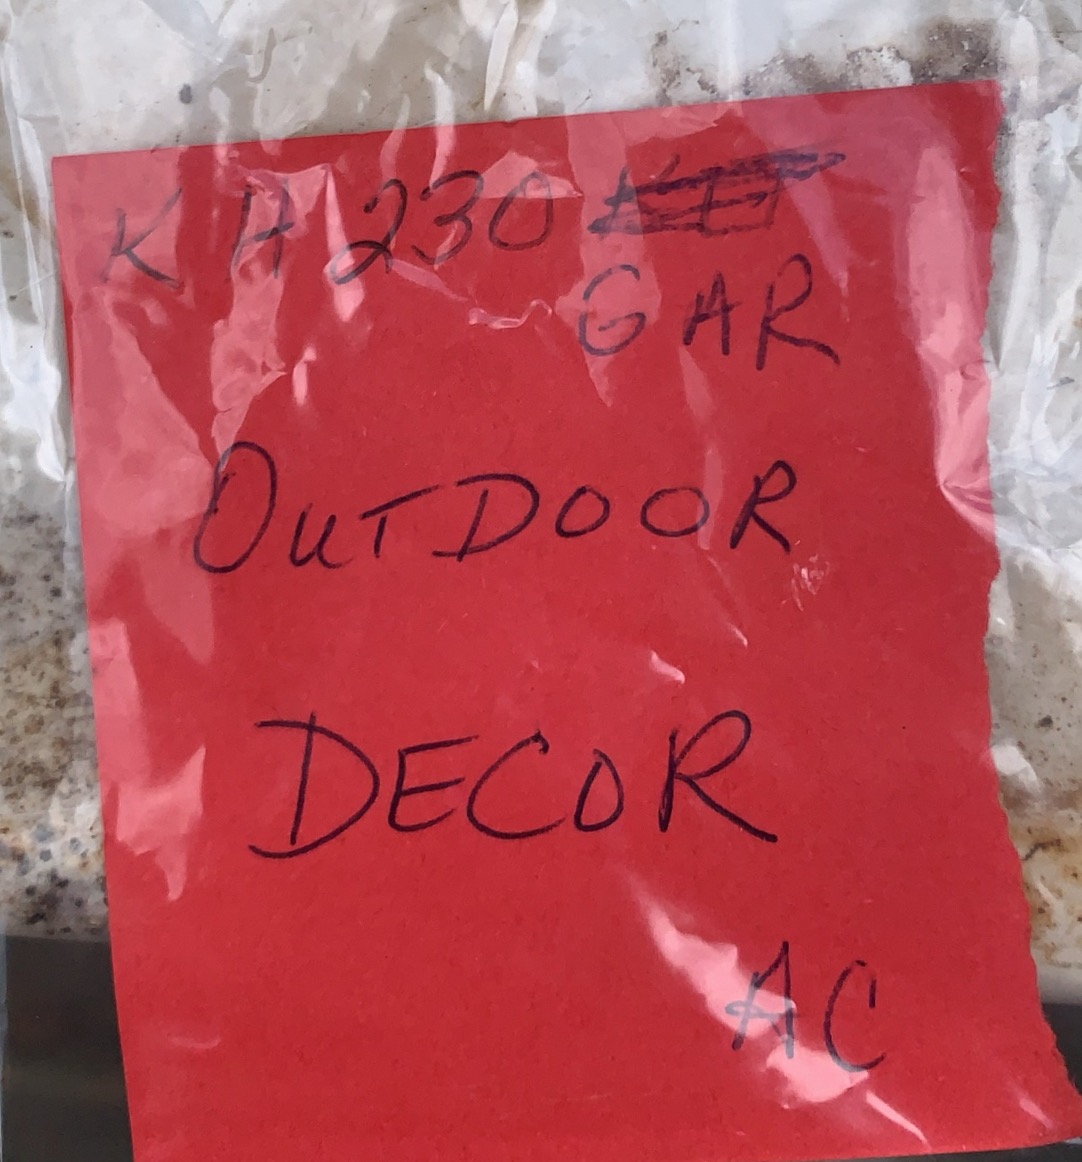 KH230
GAR
OUTDOOR
DECOR
AC